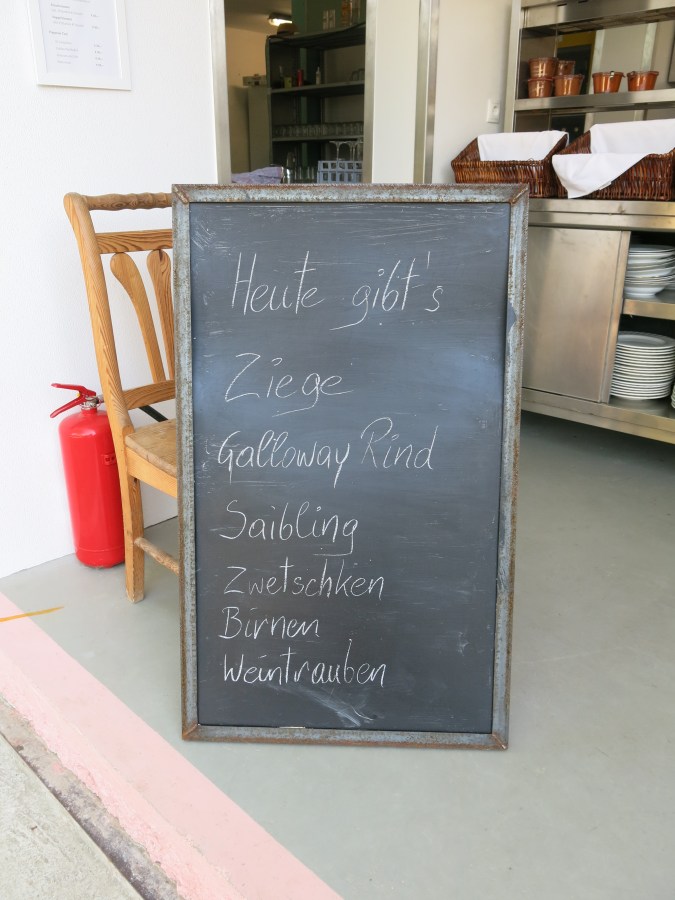 Heute gibt's
Ziege
Galloway Rind
Saibling
Zwetschken
Birnen
Weintrauben